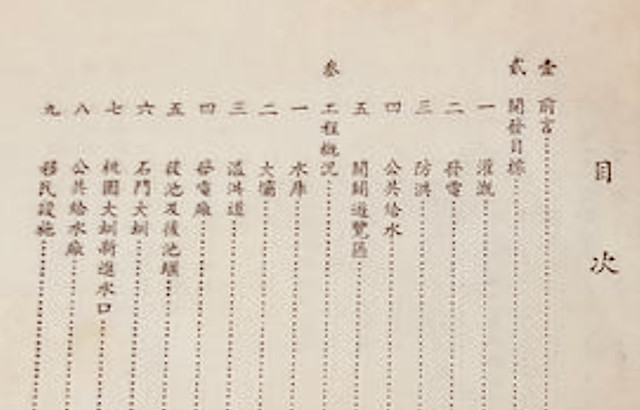 目次
壹 前言
貳 開發目標
一 灌溉
二 發電
三 防洪
四 公共給水
五 開闢遊覽區
叁 工程概況
一 水庫
二 大壩
三 溢洪道
四 發電廠
五 後池及後池堰
六 石門大圳
七 桃園大圳新進水口
八 公共給水廠
九 移民設施